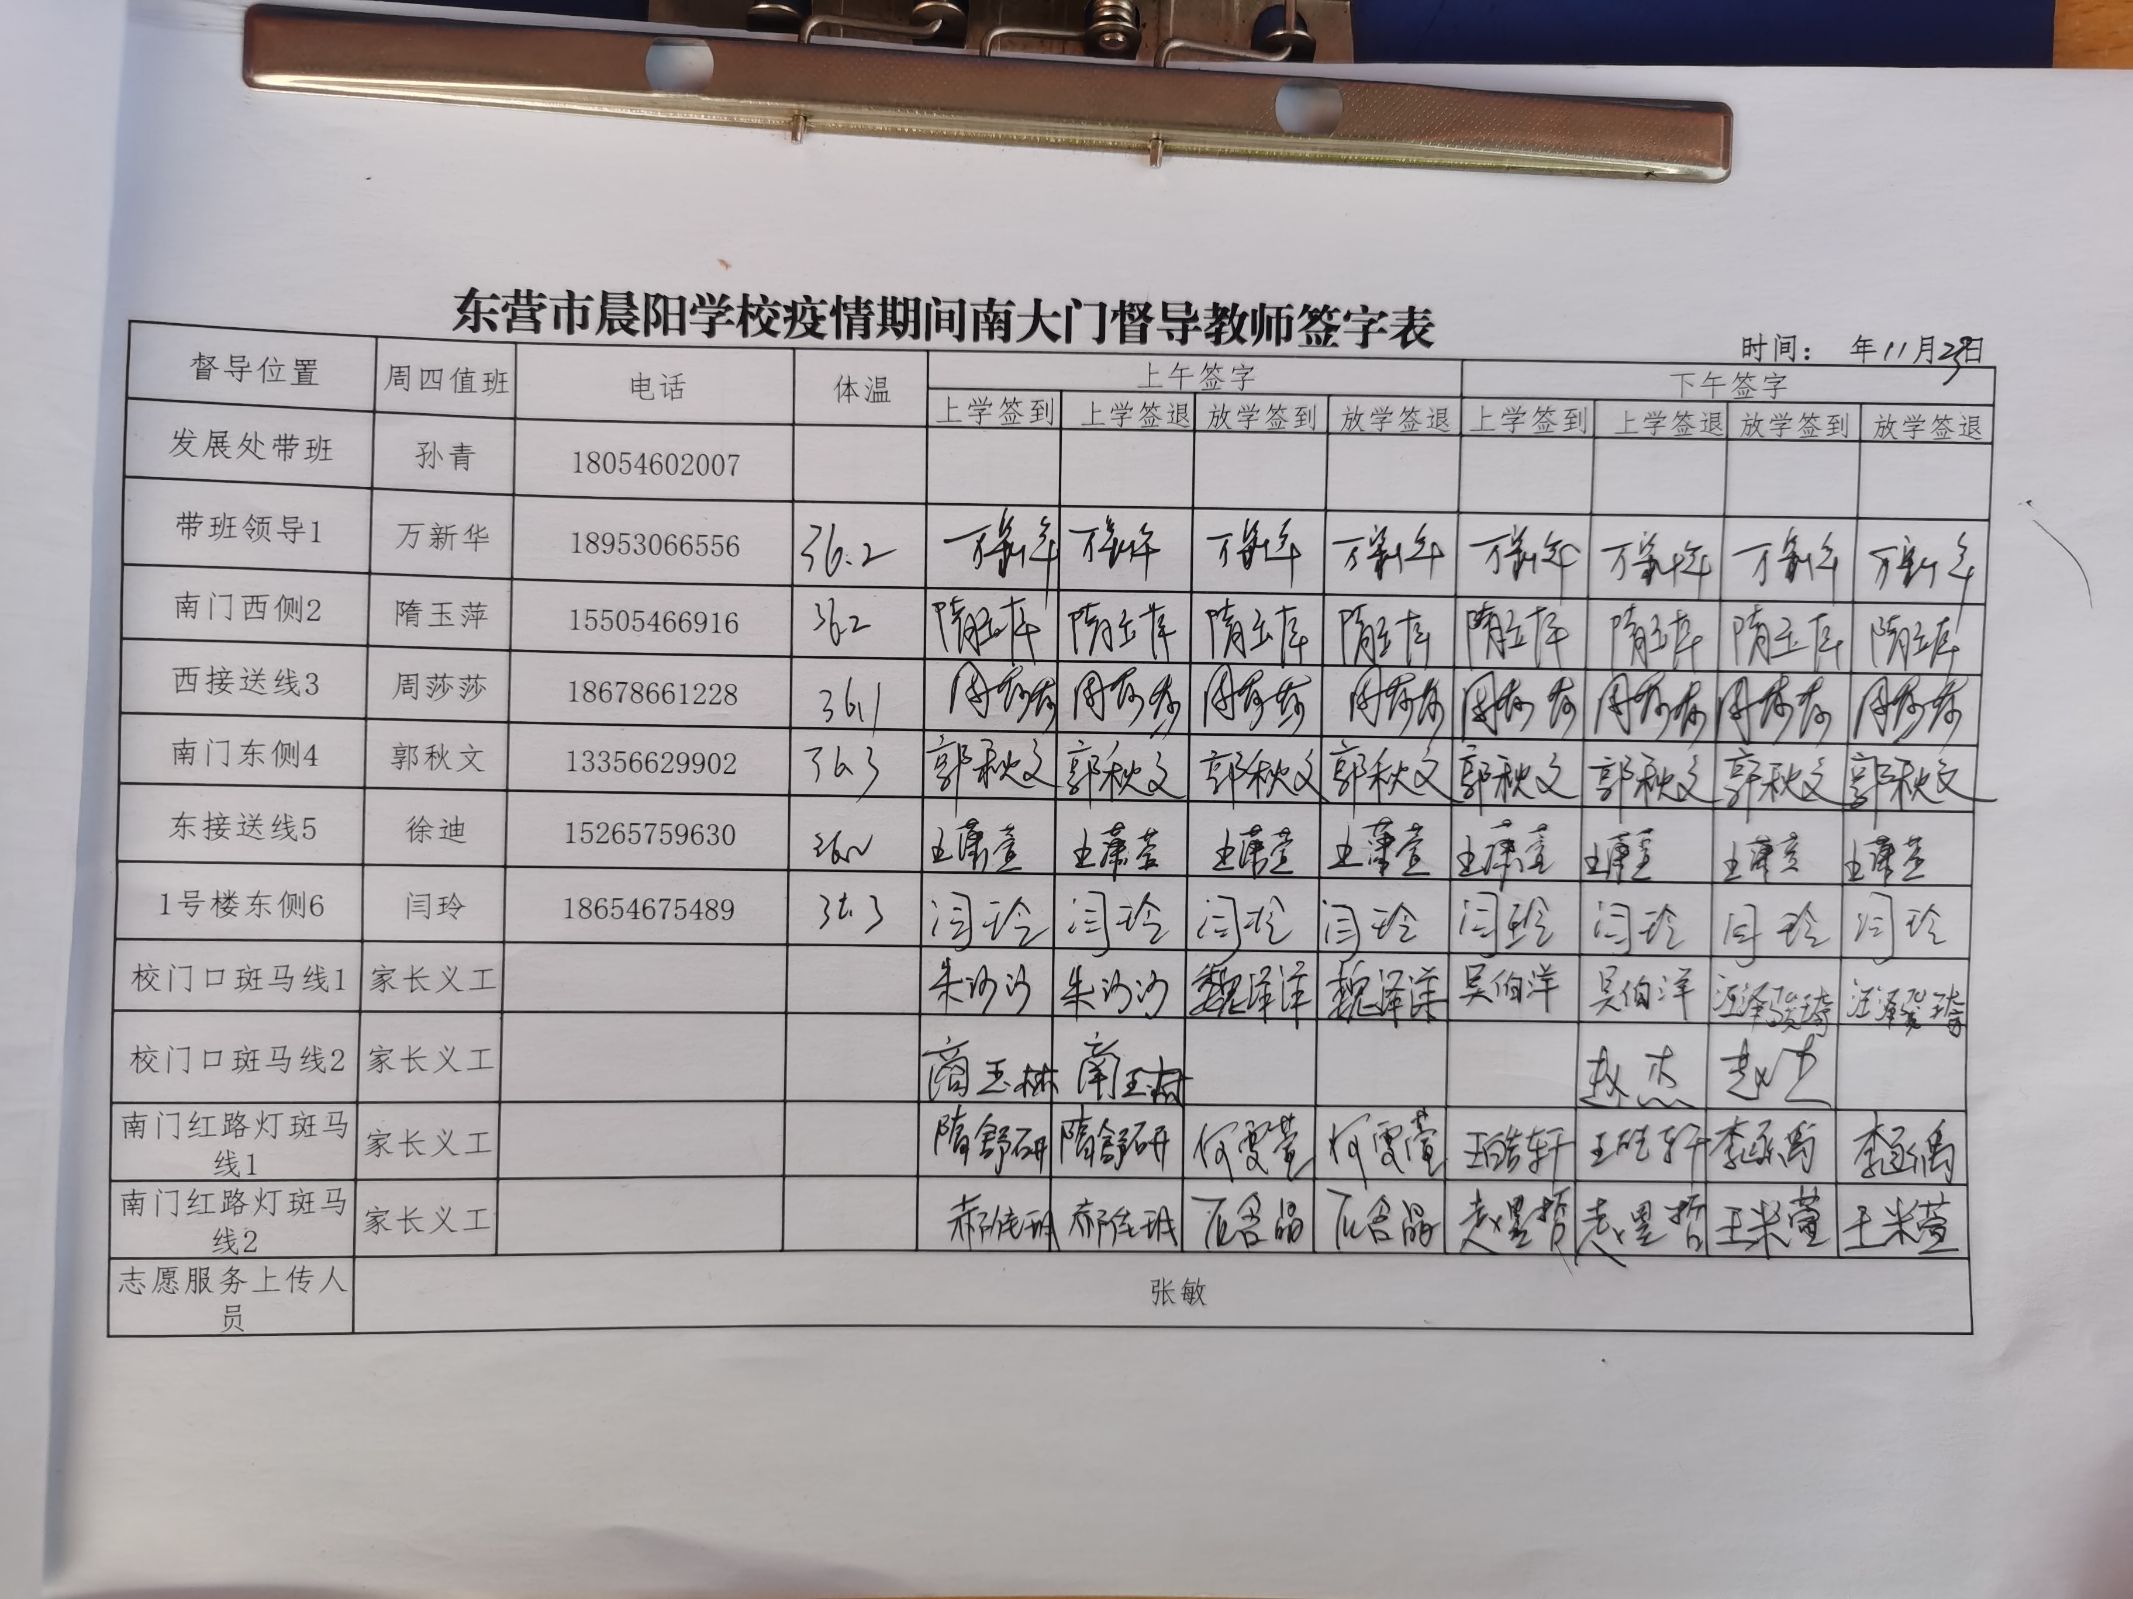 东营市晨阳学校疫情期间南大门督导教师签字表
时间： 年11月 日
督导位置 周四值班 电话 体温 上午签字 下午签字
上学签到 上学签退 放学签到 放学签退 上学签到 上学签退 放学签到 放学签退
发展处带班 孙青 18054602007
带班领导1 万新华 18953066556 36.2 万新华 万新华 万新华 万新华 万新华 万新华 万新华 万新华
南门西侧2 隋玉萍 15505466916 36.2 隋玉萍 隋玉萍 隋玉萍 隋玉萍 隋玉萍 隋玉萍 隋玉萍 隋玉萍
西接送线3 周莎莎 18678661228 36.1 周莎莎 周莎莎 周莎莎 周莎莎 周莎莎 周莎莎 周莎莎 周莎莎
南门东侧4 郭秋文 13356629902 36.3 郭秋文 郭秋文 郭秋文 郭秋文 郭秋文 郭秋文 郭秋文 郭秋文
东接送线5 徐迪 15265759630
1号楼东侧6 闫玲 18654675489 闫玲 闫玲 闫玲 闫玲 闫玲 闫玲 闫玲 闫玲
校门口斑马线1 家长义工 朱沙沙 朱沙沙 魏泽洋 魏泽洋 吴伯洋 吴伯洋
校门口斑马线2 家长义工 商玉树 商玉树 赵杰 赵杰
南门红路灯斑马
线1 家长义工 隋舒研 隋舒研 何雯萱 何雯萱 王皓轩 王皓轩 李承禹 李承禹
南门红路灯斑马
线2 家长义工 郝佳琪 郝佳琪 赵墨哲 赵墨哲 王米萱 王米萱
志愿服务上传人
员 张敏